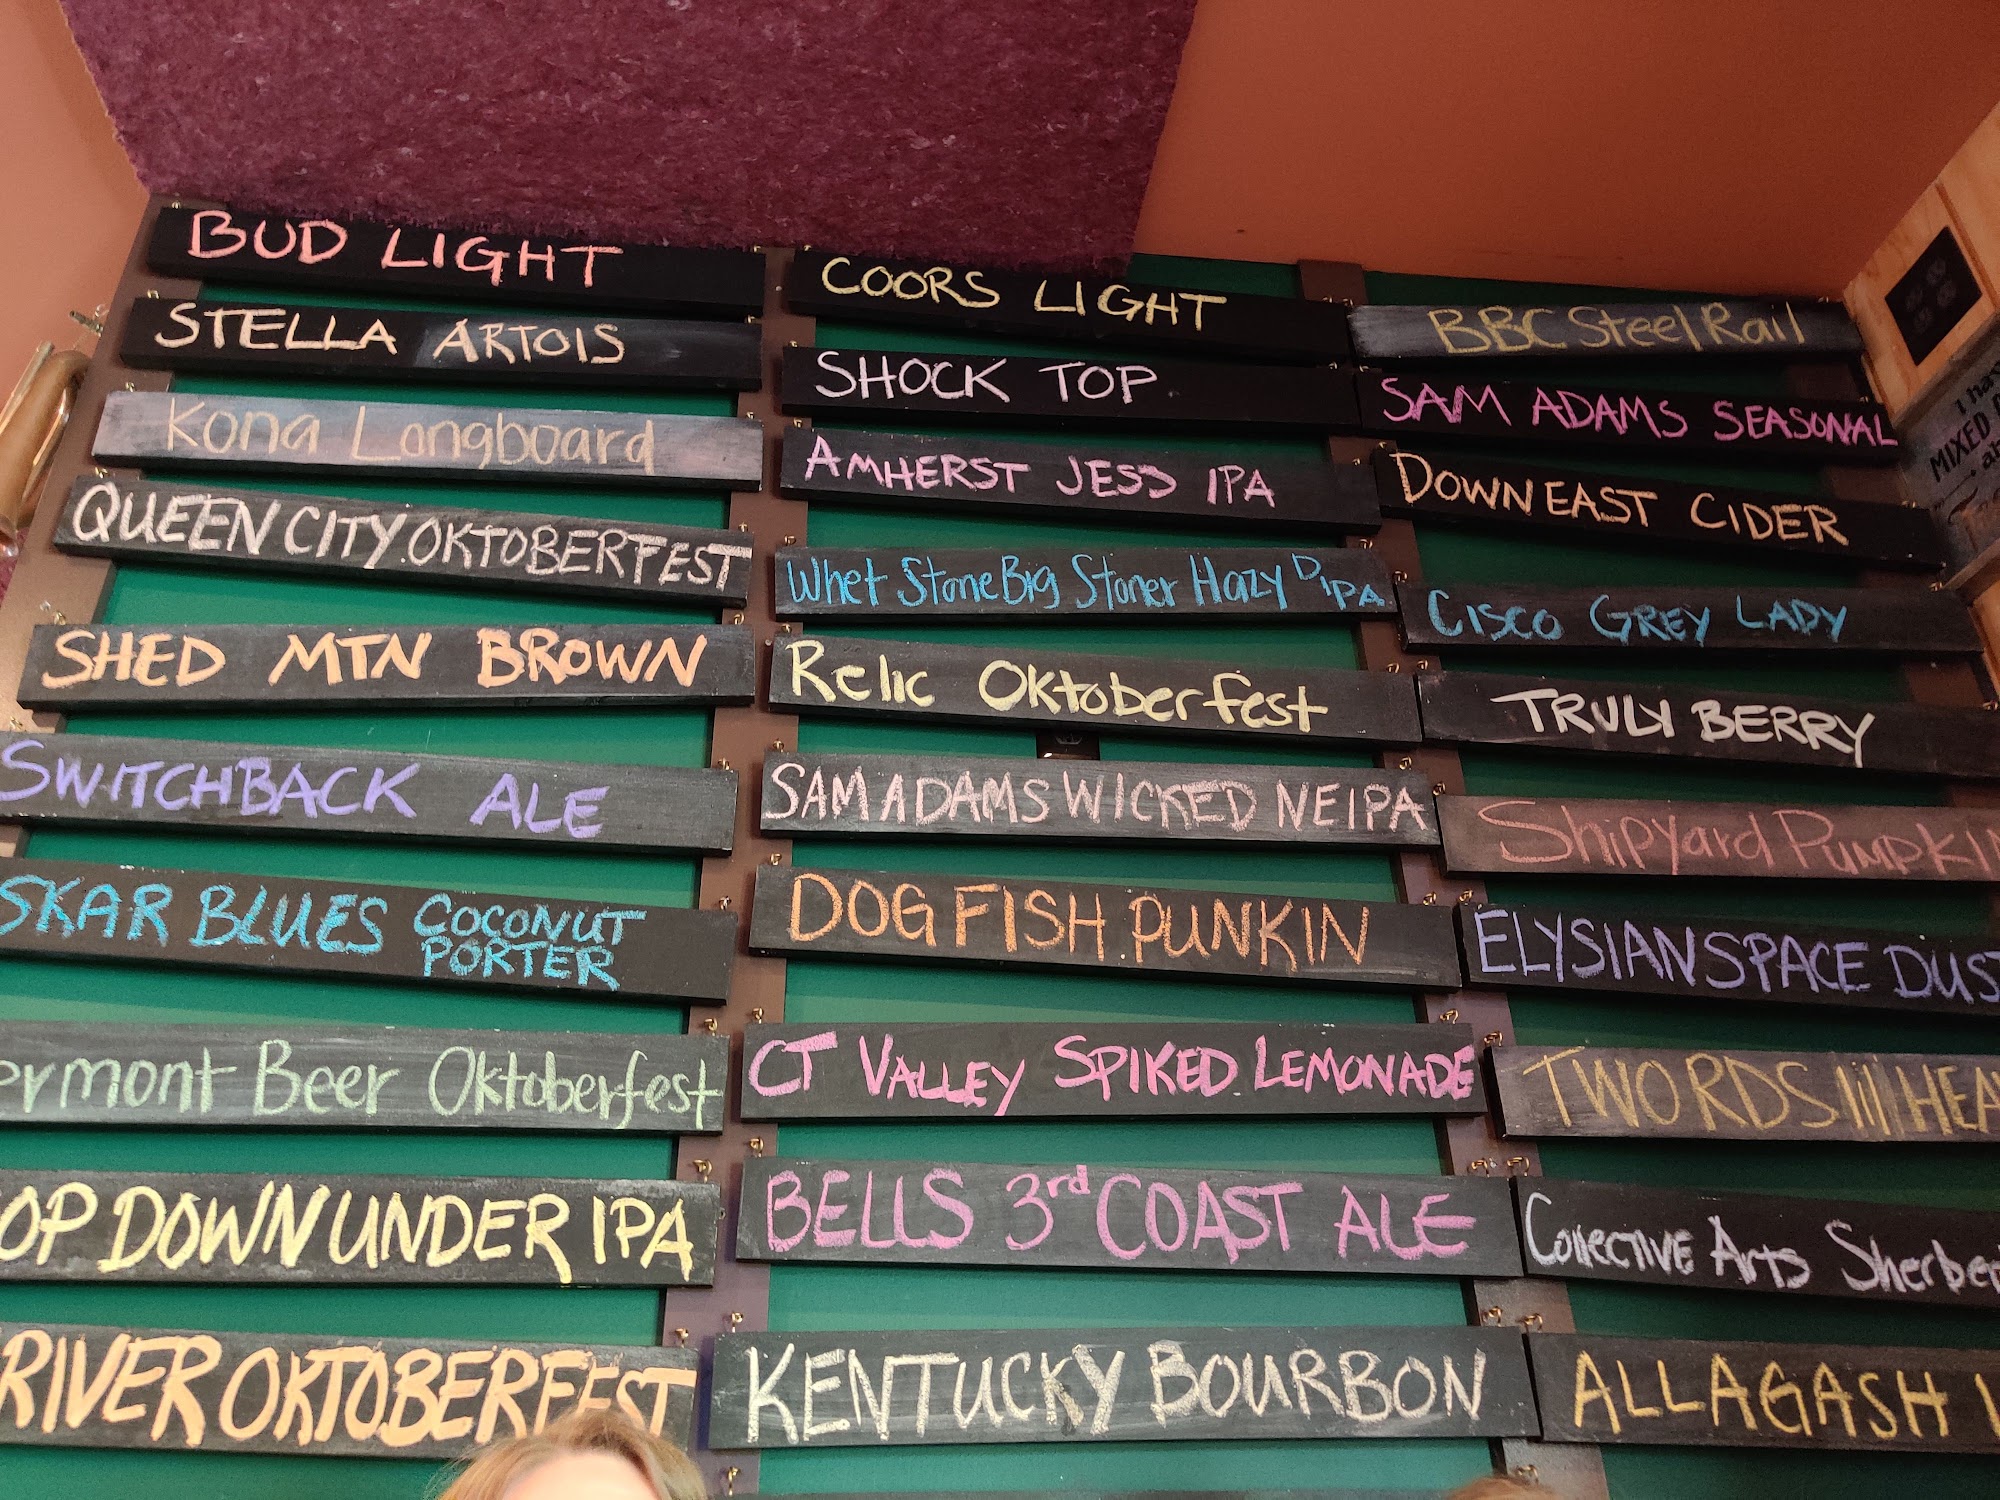 BUD LIGHT
STELLA ARTOIS
Kona Longboard
QUEEN CITY. OKTOBERFEST
SHED MTN BROWN
SWITCHBACK ALE
SKAR BLUES COCONUT
PORTER
ermont Beer Oktoberfest
OP DOWN UNDER IPA
RIVER OKTOBERFEST
COORS LIGHT
SHOCK TOP
AMHERST JESS IPA
Whet Stone Big Stoner Hazy DIPA
Relic Oktoberfest
SAM ADAMS WICKED NEIPA
DOG FISH PUNKIN
CT VALLEY SPIKED LEMONADE
BELLS 3rd COAST ALE
KENTUCKY BOURBON
BBC Steel Rail
SAM ADAMS SEASONAL
DOWN EAST CIDER
CISCO GREY LADY
TRULY BERRY
Shipyard PUMPKIN
ELYSIAN SPACE DUST
TWO RDS HEA
Collective Arts Sherbet
ALLAGASH
I ha
MIXED